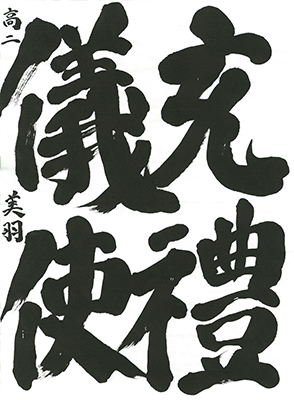 充禮
儀使
高二 美羽